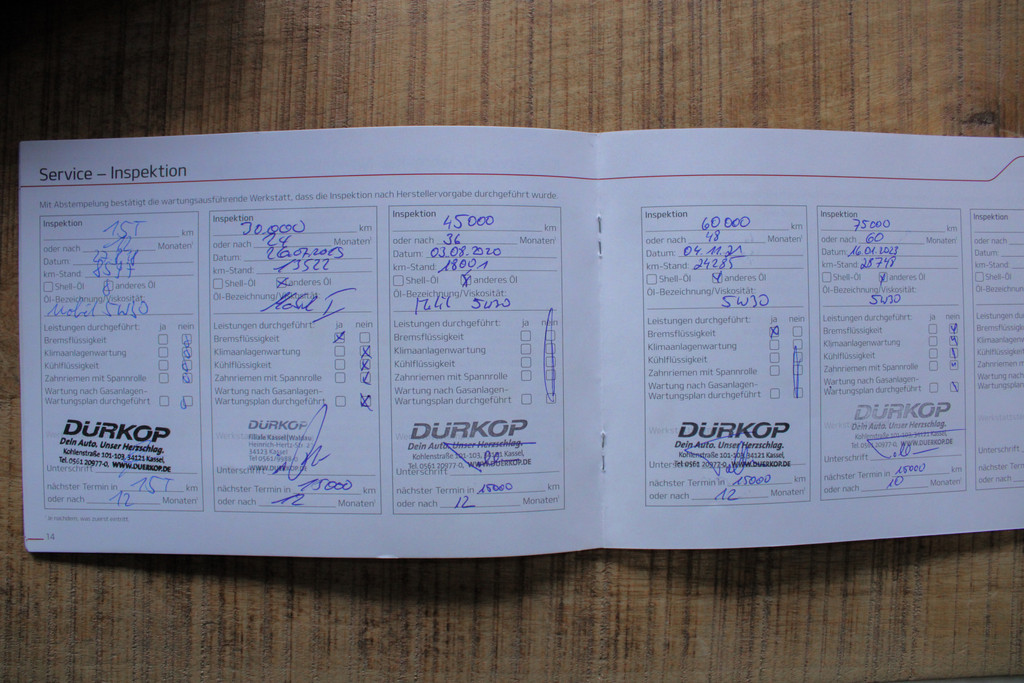 Service – Inspektion
Mit Abstempelung bestätigt die wartungsausführende Werkstatt, dass die Inspektion nach Herstellervorgabe durchgeführt wurde.
Inspektion
15T km
oder nach 12 Monaten¹
Datum:
km-Stand: 8597
Shell-Öl anderes Öl
Öl-Bezeichnung/Viskosität:
Mobil 5W30
Leistungen durchgeführt: ja nein
Bremsflüssigkeit
Klimaanlagenwartung
Kühlflüssigkeit
Zahnriemen mit Spannrolle
Wartung nach Gasanlagen-
Wartungsplan durchgeführt
DÜRKOP
Dein Auto. Unser Herzschlag.
Kohlenstraße 101-103, 34121 Kassel,
Tel. 0561 20977-0, WWW.DUERKOP.DE
Unterschrift
nächster Termin in 15T km
oder nach 12 Monaten¹
Inspektion
30.000 km
oder nach 24 Monaten¹
Datum:
km-Stand: 13522
Shell-Öl anderes Öl
Öl-Bezeichnung/Viskosität:
Leistungen durchgeführt: ja nein
Bremsflüssigkeit
Klimaanlagenwartung
Kühlflüssigkeit
Zahnriemen mit Spannrolle
Wartung nach Gasanlagen-
Wartungsplan durchgeführt
DÜRKOP
Filiale Kassel Waldau
34123 Kassel
WWW.DUERKOP.DE
Unterschrift
nächster Termin in 15000 km
oder nach 12 Monaten¹
Inspektion
45000 km
oder nach 36 Monaten¹
Datum: 03.08.2020
km-Stand: 18001
Shell-Öl anderes Öl
Öl-Bezeichnung/Viskosität:
5W30
Leistungen durchgeführt: ja nein
Bremsflüssigkeit
Klimaanlagenwartung
Kühlflüssigkeit
Zahnriemen mit Spannrolle
Wartung nach Gasanlagen-
Wartungsplan durchgeführt
DÜRKOP
Dein Auto. Unser Herzschlag.
Kohlenstraße 101-103, 34121 Kassel,
Tel. 0561 20977-0, WWW.DUERKOP.DE
Unterschrift
nächster Termin in 15000 km
oder nach 12 Monaten¹
¹Je nachdem, was zuerst eintritt
14
Inspektion
60000 km
oder nach 48 Monaten¹
Datum: 04.11.21
km-Stand: 24285
Shell-Öl anderes Öl
Öl-Bezeichnung/Viskosität:
5W30
Leistungen durchgeführt: ja nein
Bremsflüssigkeit
Klimaanlagenwartung
Kühlflüssigkeit
Zahnriemen mit Spannrolle
Wartung nach Gasanlagen-
Wartungsplan durchgeführt
DÜRKOP
Dein Auto. Unser Herzschlag.
Kohlenstraße 101-103, 34121 Kassel,
Tel. 0561 20977-0, WWW.DUERKOP.DE
Unterschrift
nächster Termin in 15000 km
oder nach 12 Monaten¹
Inspektion
75000 km
oder nach 60 Monaten¹
Datum: 16.01.2023
km-Stand: 28748
Shell-Öl anderes Öl
Öl-Bezeichnung/Viskosität:
5W30
Leistungen durchgeführt: ja nein
Bremsflüssigkeit
Klimaanlagenwartung
Kühlflüssigkeit
Zahnriemen mit Spannrolle
Wartung nach Gasanlagen-
Wartungsplan durchgeführt
DÜRKOP
Dein Auto. Unser Herzschlag.
WWW.DUERKOP.DE
Unterschrift
nächster Termin in 15000 km
oder nach Monaten¹
Inspektion
oder nach
Datum:
km-Stand:
Shell-Öl
Öl-Bezeichnung
Leistungen
Bremsflüssig
Klimaanlagen
Kühlflüssigke
Zahnriemen
Wartung nach
Wartungspla
Unterschrift
nächster Ter
oder nach